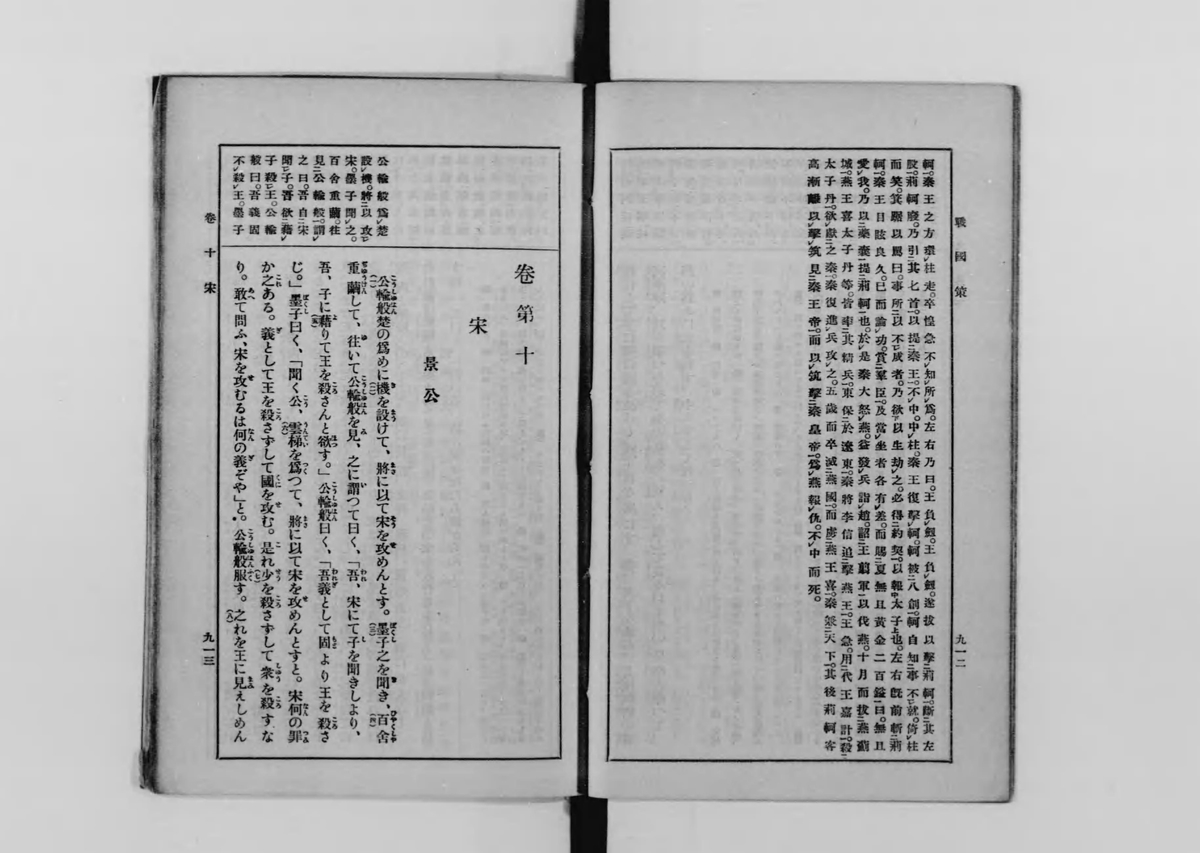 戰國策
九一二
軻。秦王之方環柱走。卒惶急不知所爲。左右乃曰。王負劒。王負劒。遂拔以擊荊軻。斷其左
股。荊軻廢。乃引其匕首。以提秦王。不中。中柱。秦王復擊軻。軻被八創。軻自知事不就。倚柱
而笑。箕踞以罵曰。事所以不成者。乃欲以生劫之。必得約契。以報太子也。左右既前斬荊
軻。秦王目眩良久。已而論功。賞羣臣。及當坐者各有差。而賜夏無且黃金二百鎰。曰。無且
愛我。乃以藥囊提荊軻也。於是秦大怒燕。益發兵詣趙。詔王翦軍以伐燕。十月而拔燕薊
城。燕王喜太子丹等。皆率其精兵。東保於遼東。秦將李信追擊燕王。王急。用代王嘉計。殺
太子丹。欲獻之秦。秦復進兵攻之。五歲而卒滅燕國。而虜燕王喜。秦兼天下。其後荊軻客
高漸離以擊筑見秦王帝。而以筑擊秦皇帝。爲燕報仇。不中而死。
公輸般爲楚
設機。將以攻
宋。墨子聞之。
百舍重繭。往
見公輸般。謂
之曰。吾自宋
聞子。吾欲藉
子殺王。公輸
般曰。吾義固
不殺王。墨子
卷第十
宋
景公
公輸般楚の爲めに機を設けて、將に以て宋を攻めんとす。墨子之を聞き、百舍
重繭して、往いて公輸般を見、之に謂つて曰く、「吾、宋にて子を聞きしより、
吾、子に藉りて王を殺さんと欲す。」公輸般曰く、「吾義として固より王を殺さ
じ。」墨子曰く、「聞く公、雲梯を爲つて、將に以て宋を攻めんとすと。宋何の罪
か之ある。義として王を殺さずして國を攻む。是れ少を殺さずして衆を殺すな
り。敢て問ふ、宋を攻むるは何の義ぞや」と。公輸般服す。之れを王に見えしめん
卷十 宋
九一三